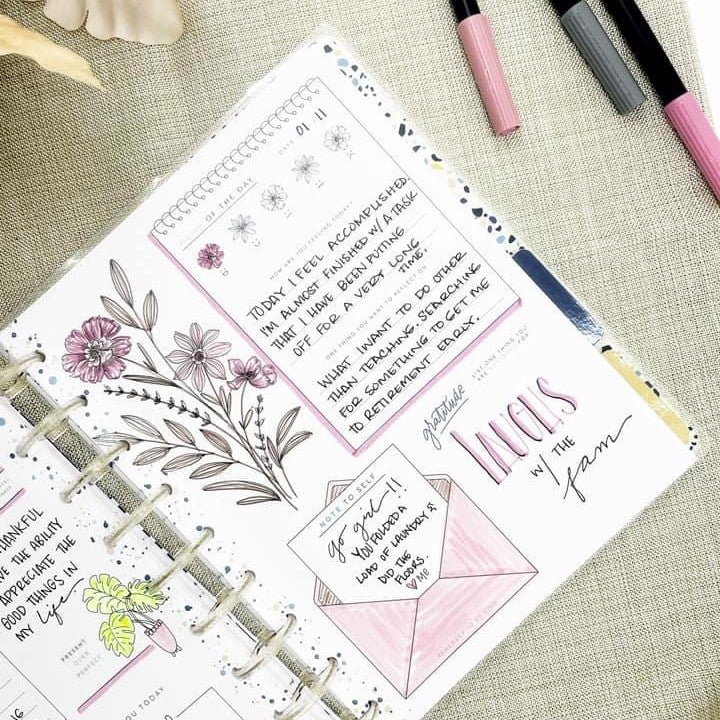 DATE 01 11
OF THE DAY
HOW ARE YOU FEELING TODAY?
TODAY I FEEL ACCOMPLISHED.
I'M ALMOST FINISHED W/ A TASK
THAT I HAVE BEEN PUTTING
OFF FOR A VERY LONG
TIME.
ONE THING YOU WANT TO REFLECT ON
WHAT I WANT TO DO OTHER
THAN TEACHING. SEARCHING
FOR SOMETHING TO GET ME
TO RETIREMENT EARLY.
gratitude
LIST ONE THING YOU
ARE FOR
LAUGHS
W/ THE
fam
NOTE TO SELF
go girl!!
YOU FOLDED A
LOAD OF LAUNDRY &
DID THE
FLOORS.
♥ME
THANKFUL
VE THE ABILITY
APPRECIATE THE
GOOD THINGS IN
MY life
PRESENT
OVER
PERFECT
YOU TODAY
16